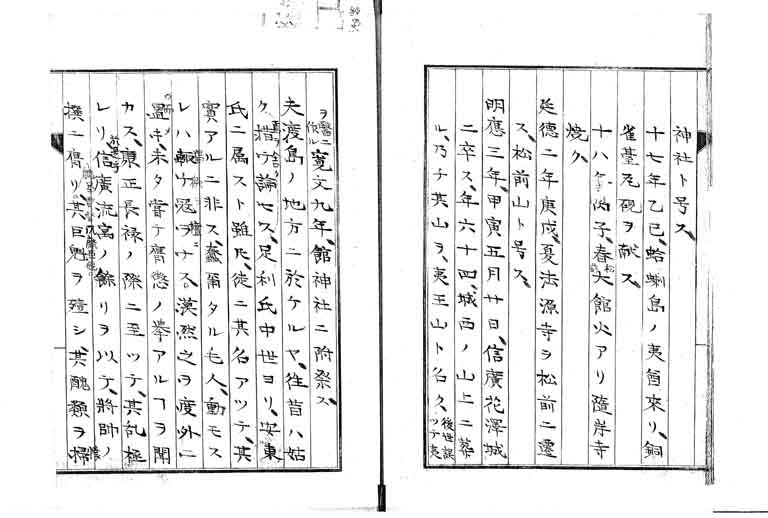 神社ト号ス、
十七年乙巳、蛤蜊島ノ夷酋来リ、銅
雀臺瓦硯ヲ献ス、
十八年丙子、春、大館火アリ隨岸寺
焼ク、
延徳二年庚戌、夏法源寺ヲ松前ニ遷
ス、松前山ト号ス、
明應三年、甲寅五月廿日、信廣花澤城
ニ卒ス、年六十四、城西ノ山上ニ葬
ル、乃チ其山ヲ、夷王山ト名ク、後世誤ツテ夷
寛文九年、館神社ニ附祭ス、
夫渡島ノ地方ニ於ケルヤ、往昔ハ姑
ク措テ論セス、足利氏中世ヨリ、安東
氏ニ属スト雖氏、徒ニ其名アツテ、其
實アルニ非ス、蠢爾タル毛人、動モス
レハ輙チ冠ヲナス、漠然之ヲ度外ニ
置キ、未タ嘗テ膺懲ノ挙アルヿヲ聞
カス、康正長禄ノ際ニ至ツテ、其乱極
レリ、信廣流寓ノ餘リヲ以テ、将帥ノ
撰ニ膺リ、其巨魁ヲ殪シ、其醜類ヲ掃